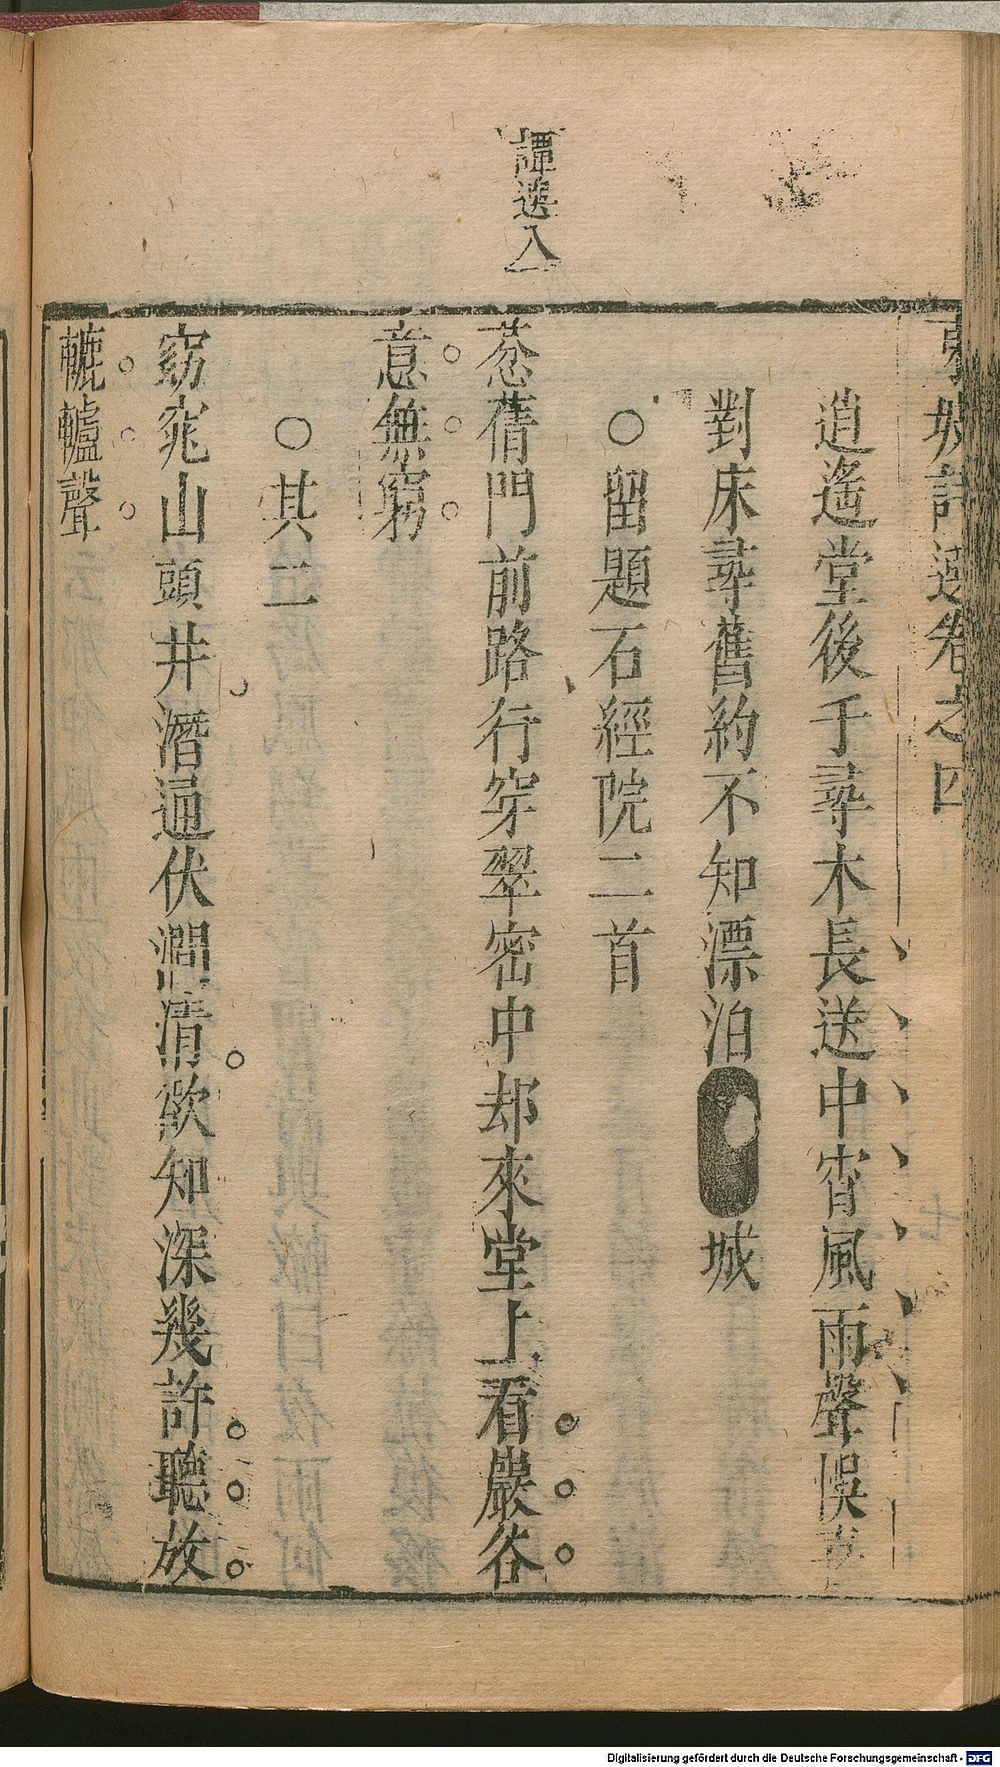 東坡詩選卷之四
逍遙堂後千尋木長送中宵風雨聲悞喜
對床尋舊約不知漂泊 城
○留題石經院二首
葱蒨門前路行穿翠密中却來堂上看巖谷
意無窮
○其二
窈窕山頭井潛通伏澗清欲知深幾許聽放
轆轤聲
譚選入
七
Digitalisierung gefördert durch die Deutsche Forschungsgemeinschaft - DFG